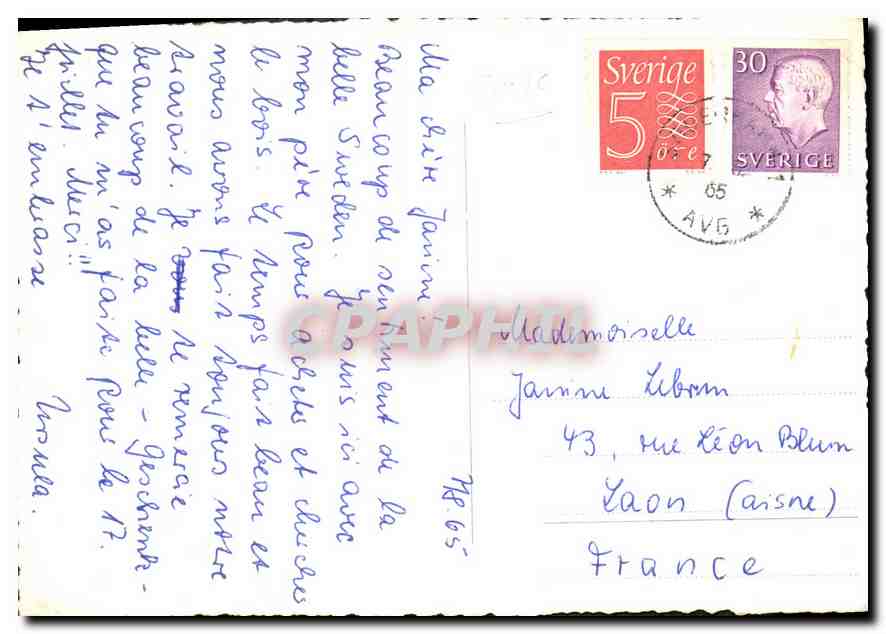 7.8.65
Ma chère Janine!
Beaucoup de sentiment de la
belle Sweden. Je suis ici avec
mon père pour acheter et chercher
le bois. Le temps fait beau et
nous avons fait toujours notre
travail. Je te remercie
beaucoup de la belle - Geschenk -
que tu m'as faite pour le 17.
juillet. Merci!!
Je t'embrasse
Ursula.
Sverige
5
öre
30
SVERIGE
7
65
AVG
Mademoiselle
Janine Lebrun
43, rue Léon Blum
Laon (aisne)
France
CPAPHIL